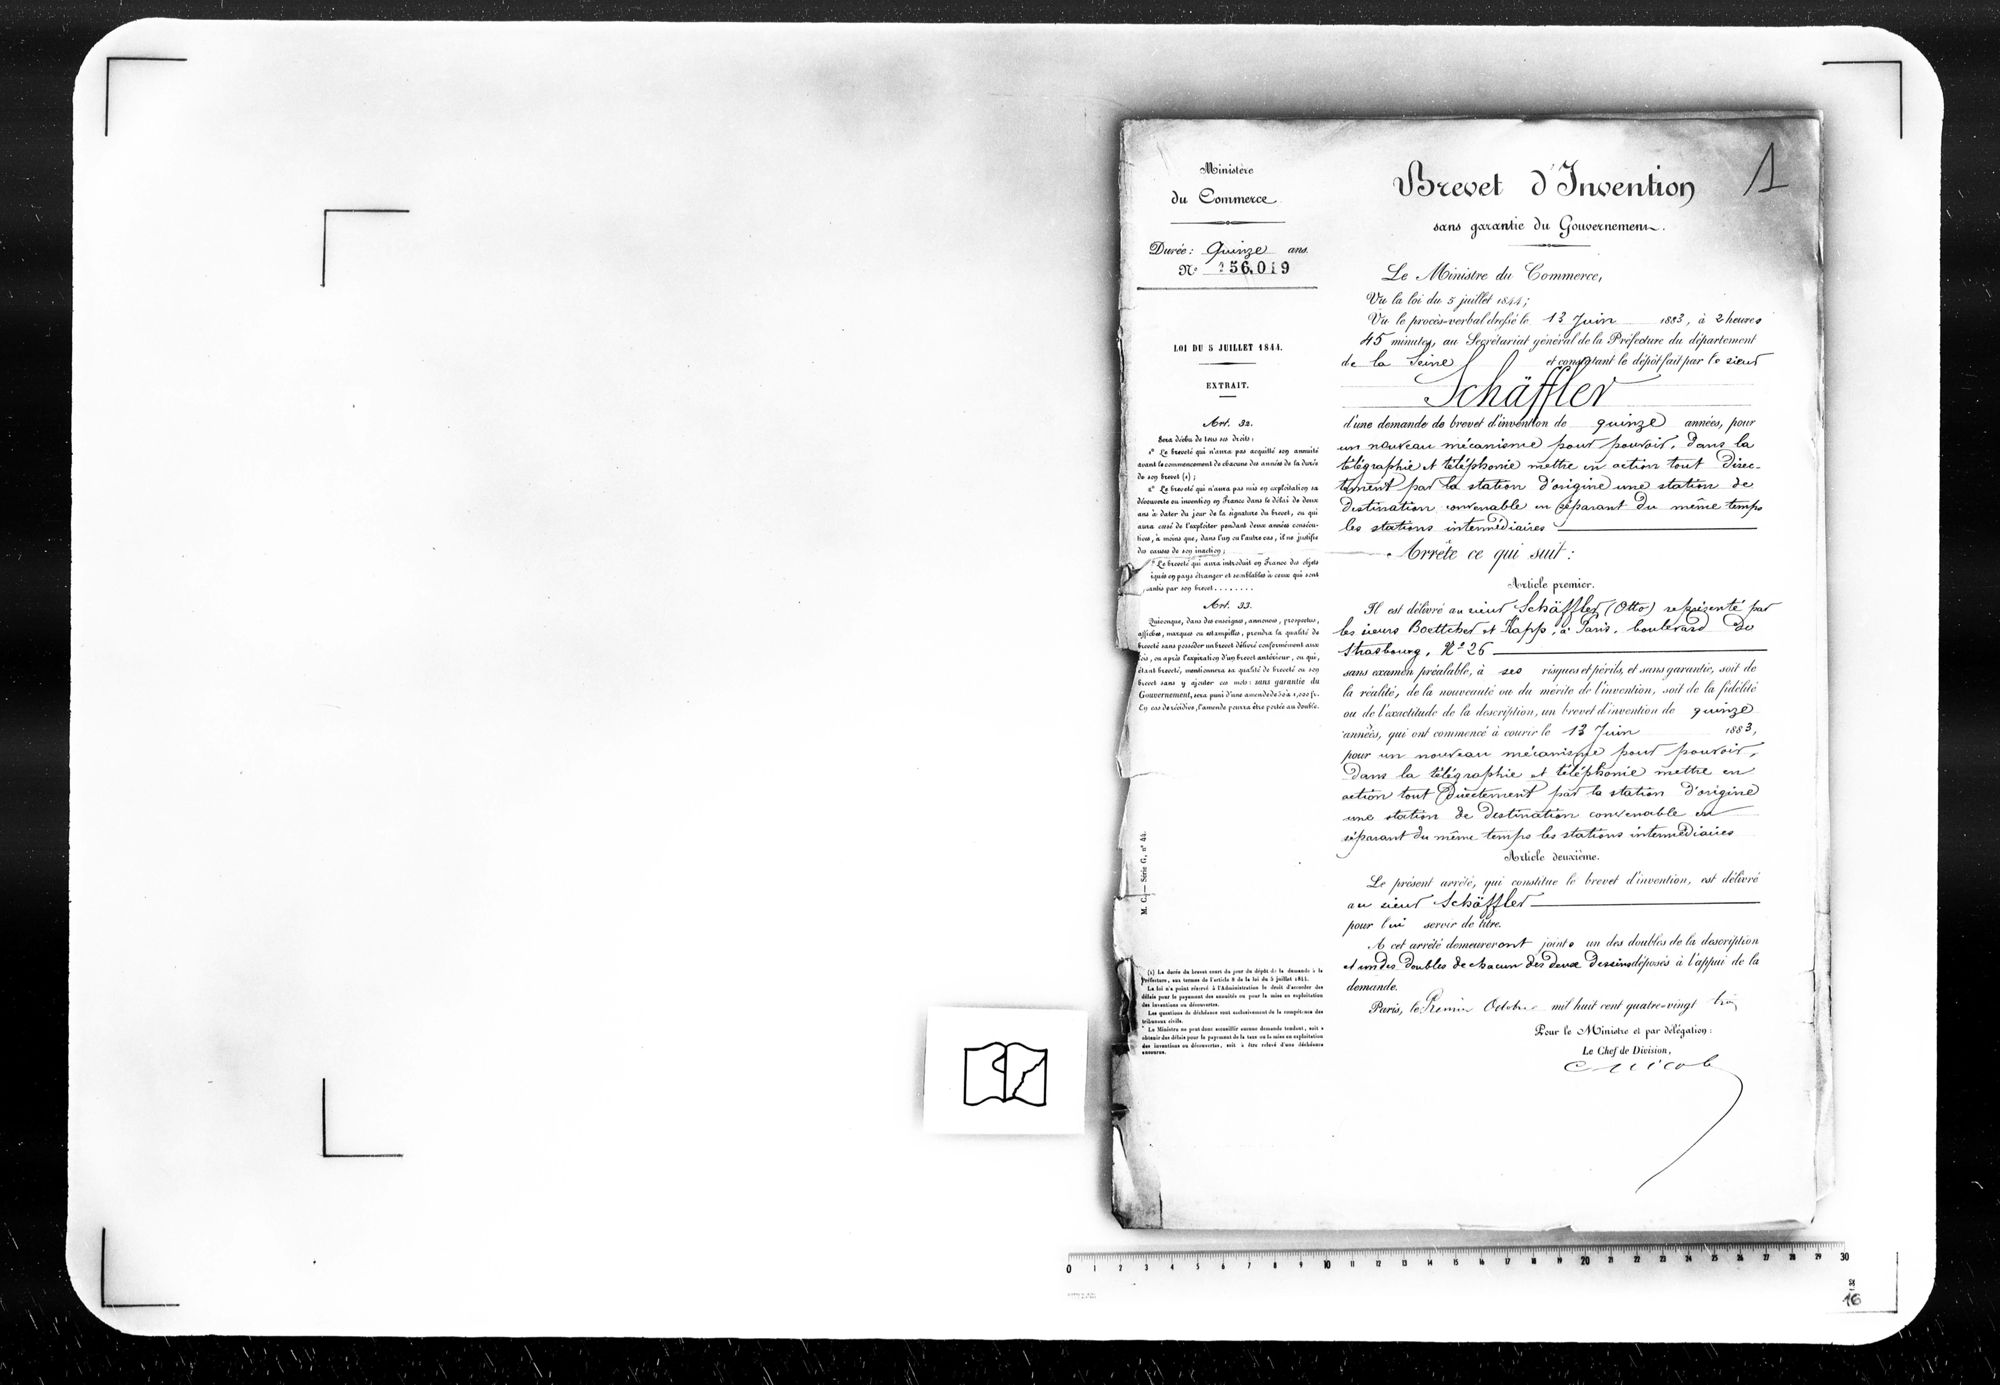 Ministère
du Commerce
Durée : Quinze ans.
N° 156,019
LOI DU 5 JUILLET 1844.
EXTRAIT.
Art. 32.
Sera déchu de tous ses droits :
1° Le breveté qui n'aura pas acquitté son annuité
avant le commencement de chacune des années de la durée
de son brevet (1) ;
2° Le breveté qui n'aura pas mis en exploitation sa
découverte ou invention en France dans le délai de deux
ans à dater du jour de la signature du brevet, ou qui
aura cessé de l'exploiter pendant deux années consécu-
tives, à moins que, dans l'un ou l'autre cas, il ne justifie
des causes de son inaction ;
° Le breveté qui aura introduit en France des objets
iqués en pays étranger et semblables à ceux qui sont
antis par son brevet........
Art. 33.
Quiconque, dans des enseignes, annonces, prospectus,
affiches, marques ou estampilles, prendra la qualité de
breveté sans posséder un brevet délivré conformément aux
lois, ou après l'expiration d'un brevet antérieur, ou qui,
étant breveté, mentionnera sa qualité de breveté ou son
brevet sans y ajouter ces mots : sans garantie du
Gouvernement, sera puni d'une amende de 50 à 1,000 fr.
En cas de récidive, l'amende pourra être portée au double.
M. C. — Série G, n° 44.
(1) La durée du brevet court du jour du dépôt de la demande à la
Préfecture, aux termes de l'article 8 de la loi du 5 juillet 1844.
La loi n'a point réservé à l'Administration le droit d'accorder des
délais pour le payement des annuités ou pour la mise en exploitation
des inventions ou découvertes.
Les questions de déchéance sont exclusivement de la compétence des
tribunaux civils.
Le Ministre ne peut donc accueillir aucune demande tendant, soit à
obtenir des délais pour le payement de la taxe ou la mise en exploitation
des inventions ou découvertes, soit à être relevé d'une déchéance
encourue.
Brevet d'Invention
1
sans garantie du Gouvernement.
Le Ministre du Commerce,
Vu la loi du 5 juillet 1844 ;
Vu le procès-verbal dressé le 13 Juin 1883, à 2 heures
45 minutes, au Secrétariat général de la Préfecture du département
de la Seine et constatant le dépôt fait par le sieur
Schäffler
d'une demande de brevet d'invention de quinze années, pour
un nouveau mécanisme pour pouvoir, dans la
télégraphie et téléphonie mettre en action tout direc-
tement par la station d'origine une station de
destination convenable en séparant du même temps
les stations intermédiaires
Arrête ce qui suit :
Article premier.
Il est délivré au sieur Schäffler (Otto) représenté par
les sieurs Boettcher et Kapp, à Paris, boulevard de
Strasbourg, N° 26
sans examen préalable, à ses risques et périls, et sans garantie, soit de
la réalité, de la nouveauté ou du mérite de l'invention, soit de la fidélité
ou de l'exactitude de la description, un brevet d'invention de quinze
années, qui ont commencé à courir le 13 Juin 1883,
pour un nouveau mécanisme pour pouvoir,
dans la télégraphie et téléphonie mettre en
action tout directement par la station d'origine
une station de destination convenable en
séparant du même temps les stations intermédiaires
Article deuxième.
Le présent arrêté, qui constitue le brevet d'invention, est délivré
au sieur Schäffler
pour lui servir de titre.
A cet arrêté demeureront joints un des doubles de la description
et un des doubles de chacun des deux dessins déposés à l'appui de la
demande.
Paris, le Premier Octobre mil huit cent quatre-vingt trois
Pour le Ministre et par délégation :
Le Chef de Division,
0 1 2 3 4 5 6 7 8 9 10 11 12 13 14 15 16 17 18 19 20 21 22 23 24 25 26 27 28 29 30
16